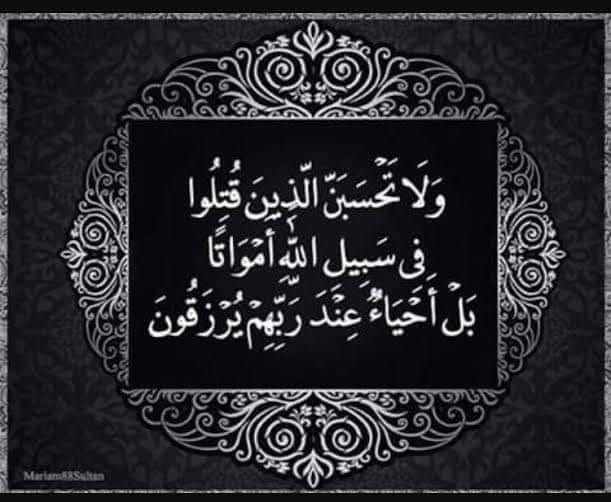 وَلَا تَحْسَبَنَّ الَّذِينَ قُتِلُوا
فِى سَبِيلِ اللَّهِ أَمْوَاتًا
بَلْ أَحْيَاءٌ عِنْدَ رَبِّهِمْ يُرْزَقُونَ
Mariam88Sultan